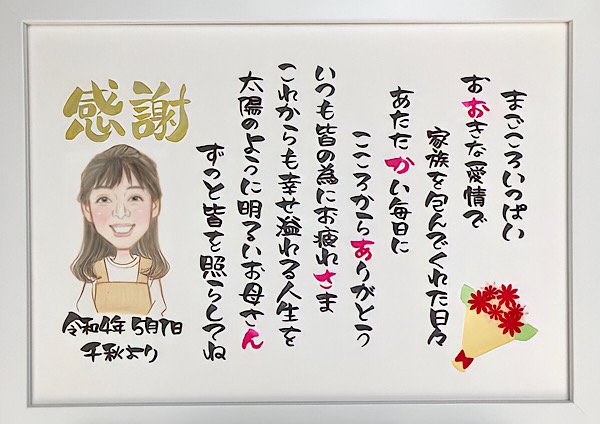 まごころいっぱい
おおきな愛情で
家族を包んでくれた日々
あたたかい毎日に
こころからありがとう
いつも皆の為にお疲れさま
これからも幸せ溢れる人生を
太陽のように明るいお母さん
ずっと皆を照らしてね
感謝
令和4年 5月1日
千秋より